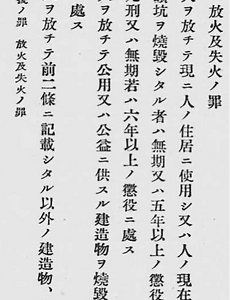 放火及失火ノ罪
ヲ放チテ現ニ人ノ住居ニ使用シ又ハ人ノ現在
鑛坑ヲ燒毀シタル者ハ無期又ハ五年以上ノ懲役
死刑又ハ無期若ハ六年以上ノ懲役ニ處ス
ヲ放チテ公用又ハ公益ニ供スル建造物ヲ燒毀
處ス
ヲ放チテ前二條ニ記載シタル以外ノ建造物、
ノ罪 放火及失火ノ罪